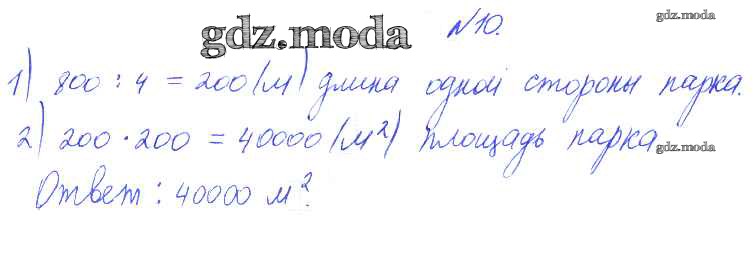 gdz.moda
№10.
gdz.moda
1) 800 : 4 = 200 (м) длина одной стороны парка.
2) 200 · 200 = 40000 (м²) площадь парка
gdz.moda
Ответ: 40000 м².